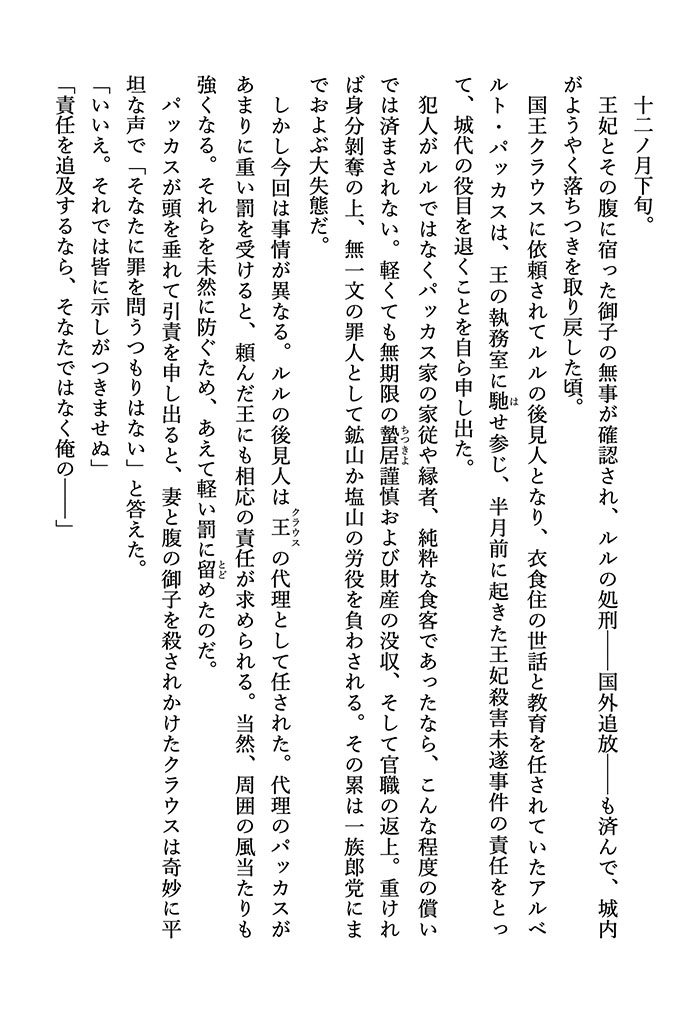 十二ノ月下旬。
王妃とその腹に宿った御子の無事が確認され、ルルの処刑――国外追放――も済んで、城内
がようやく落ちつきを取り戻した頃。
国王クラウスに依頼されてルルの後見人となり、衣食住の世話と教育を任されていたアルベ
ルト・パッカスは、王の執務室に馳せ参じ、半月前に起きた王妃殺害未遂事件の責任をとっ
て、城代の役目を退くことを自ら申し出た。
犯人がルルではなくパッカス家の家従や縁者、純粋な食客であったなら、こんな程度の償い
では済まされない。軽くても無期限の蟄居謹慎および財産の没収、そして官職の返上。重けれ
ば身分剝奪の上、無一文の罪人として鉱山か塩山の労役を負わされる。その累は一族郎党にま
でおよぶ大失態だ。
しかし今回は事情が異なる。ルルの後見人は王の代理として任された。代理のパッカスが
あまりに重い罰を受けると、頼んだ王にも相応の責任が求められる。当然、周囲の風当たりも
強くなる。それらを未然に防ぐため、あえて軽い罰に留めたのだ。
パッカスが頭を垂れて引責を申し出ると、妻と腹の御子を殺されかけたクラウスは奇妙に平
坦な声で「そなたに罪を問うつもりはない」と答えた。
「いいえ。それでは皆に示しがつきませぬ」
「責任を追及するなら、そなたではなく俺の――」
は
ちつきよ
クラウス
とど